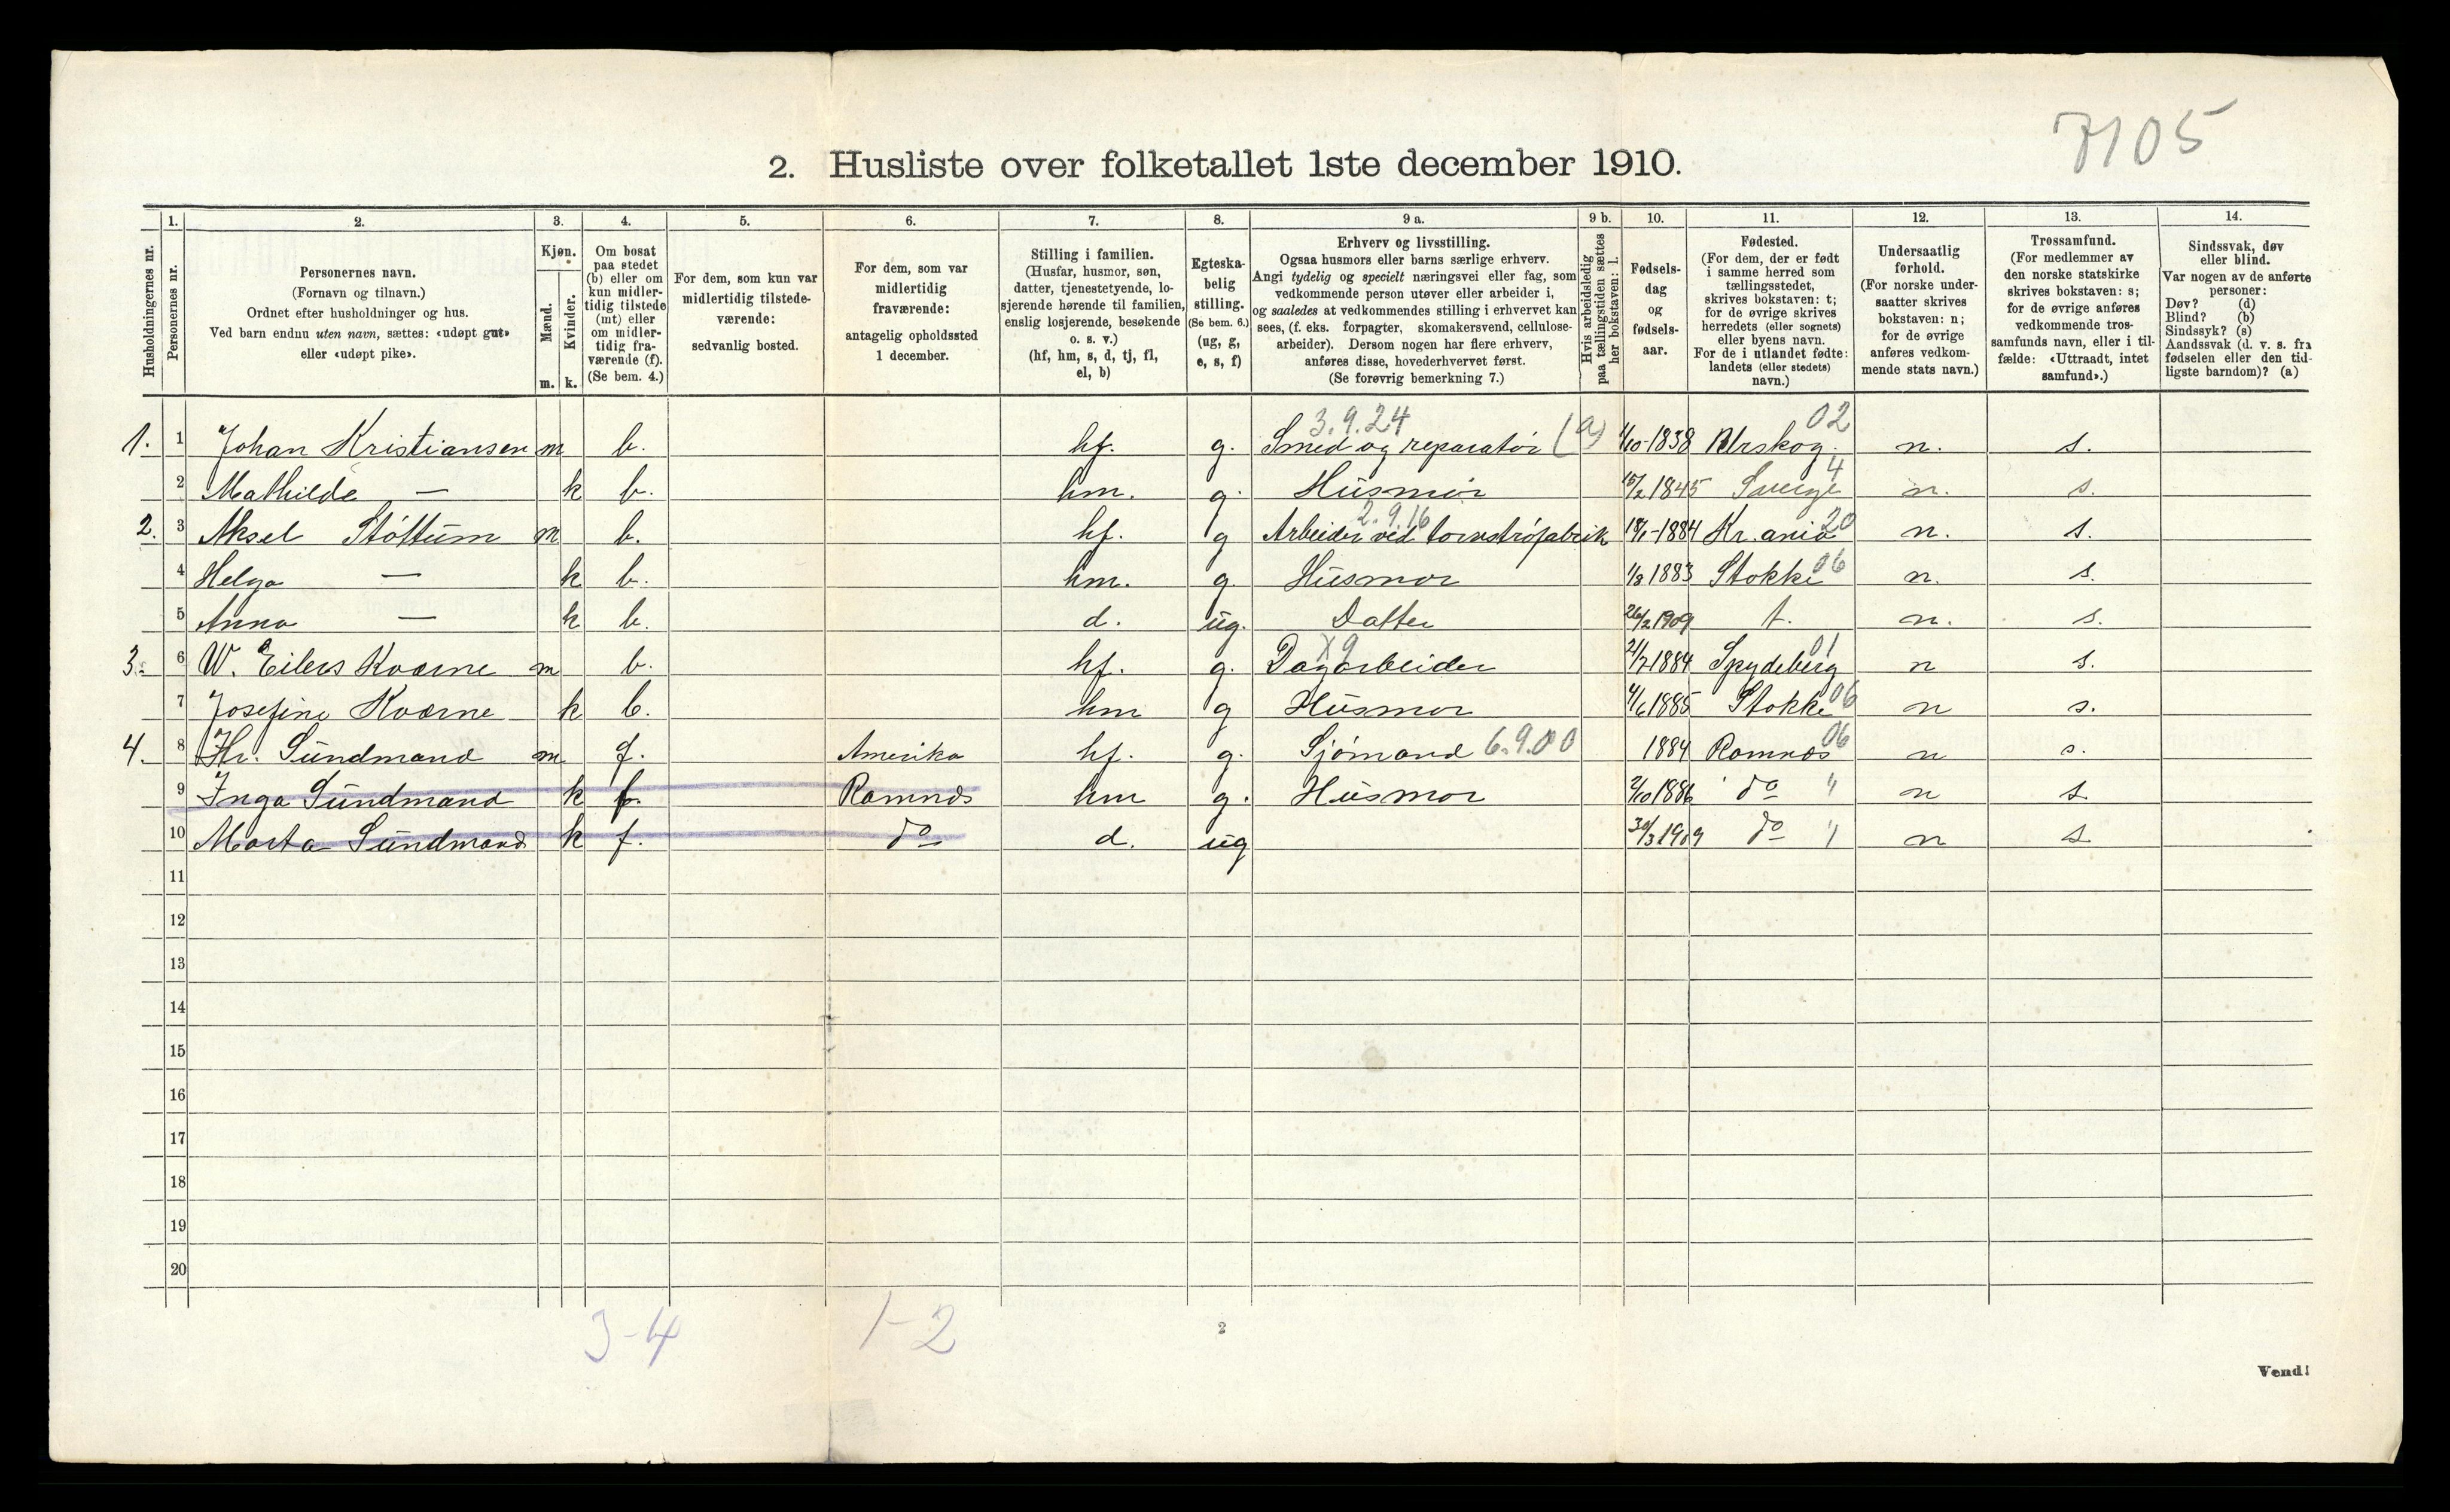 7105
2. Husliste over folketallet 1ste december 1910.
Husholdningernes nr.
1. Personernes nr.
2. Personernes navn.
(Fornavn og tilnavn.)
Ordnet efter husholdninger og hus.
Ved barn endnu uten navn, sættes: «udøpt gut»
eller «udøpt pike».
3. Kjøn.
Mænd. m.
Kvinder. k.
4. Om bosat
paa stedet
(b) eller om
kun midler-
tidig tilstede
(mt) eller
om midler-
tidig fra-
værende (f).
(Se bem. 4.)
5. For dem, som kun var
midlertidig tilstede-
værende:
sedvanlig bosted.
6. For dem, som var
midlertidig
fraværende:
antagelig opholdssted
1 december.
7. Stilling i familien.
(Husfar, husmor, søn,
datter, tjenestetyende, lo-
sjerende hørende til familien,
enslig losjerende, besøkende
o. s. v.)
(hf, hm, s, d, tj, fl,
el, b)
8. Egteska-
belig
stilling.
(Se bem. 6.)
(ug, g,
e, s, f)
9 a. Erhverv og livsstilling.
Ogsaa husmors eller barns særlige erhverv.
Angi tydelig og specielt næringsvei eller fag, som
vedkommende person utøver eller arbeider i,
og saaledes at vedkommendes stilling i erhvervet kan
sees, (f. eks. forpagter, skomakersvend, cellulose-
arbeider). Dersom nogen har flere erhverv,
anføres disse, hovederhvervet først.
(Se forøvrig bemerkning 7.)
9 b. Hvis arbeidsledig
paa tællingstiden sættes
her bokstaven: l.
10. Fødsels-
dag
og
fødsels-
aar.
11. Fødested.
(For dem, der er født
i samme herred som
tællingsstedet,
skrives bokstaven: t;
for de øvrige skrives
herredets (eller sognets)
eller byens navn.
For de i utlandet fødte:
landets (eller stedets)
navn.)
12. Undersaatlig
forhold.
(For norske under-
saatter skrives
bokstaven: n;
for de øvrige
anføres vedkom-
mende stats navn.)
13. Trossamfund.
(For medlemmer av
den norske statskirke
skrives bokstaven: s;
for de øvrige anføres
vedkommende tros-
samfunds navn, eller i til-
fælde: «Uttraadt, intet
samfund».)
14. Sindssvak, døv
eller blind.
Var nogen av de anførte
personer:
Døv? (d)
Blind? (b)
Sindssyk? (s)
Aandssvak (d. v. s. fra
fødselen eller den tid-
ligste barndom)? (a)
3.9.24 02
1. 1 Johan Kristiansen m b. hf. g. Smed og reparatør (a) 1838 Urskog. n. s.
4
2 Mathilde — k b. hm. g. Husmor 15/2 1845 Sverge n. s.
2.9.16 20
2. 3 Aksel Støttum m b. hf. g Arbeider ved torvstrøfabrik 1884 Kr.ania n. s.
4 Helga — k b. hm. g. Husmor 1/8 1883 Stokke 06 n. s.
5 Anna — k b. d. ug. Datter 26/2 1909 t. n. s.
X9 01
3. 6 W. Eilers Kværne m b. hf. g. Dagarbeider 21/7 1884 Spydeberg n s.
7 Josefine Kværne k b. hm g Husmor 4/6 1885 Stokke 06 n s.
4. 8 Hr. Sundmand m f. Amerika hf. g. Sjømand 6.9.00 1884 Ramnæs 06 n s.
9 Inga Sundmand k f. Ramnæs hm g. Husmor 2/10 1886 do " n s.
10 Marta Sundmand k f. do d. ug 30/3 1909 do " n s
11
12
13
14
15
16
17
18
19
20
3-4 1-2
2
Vend!